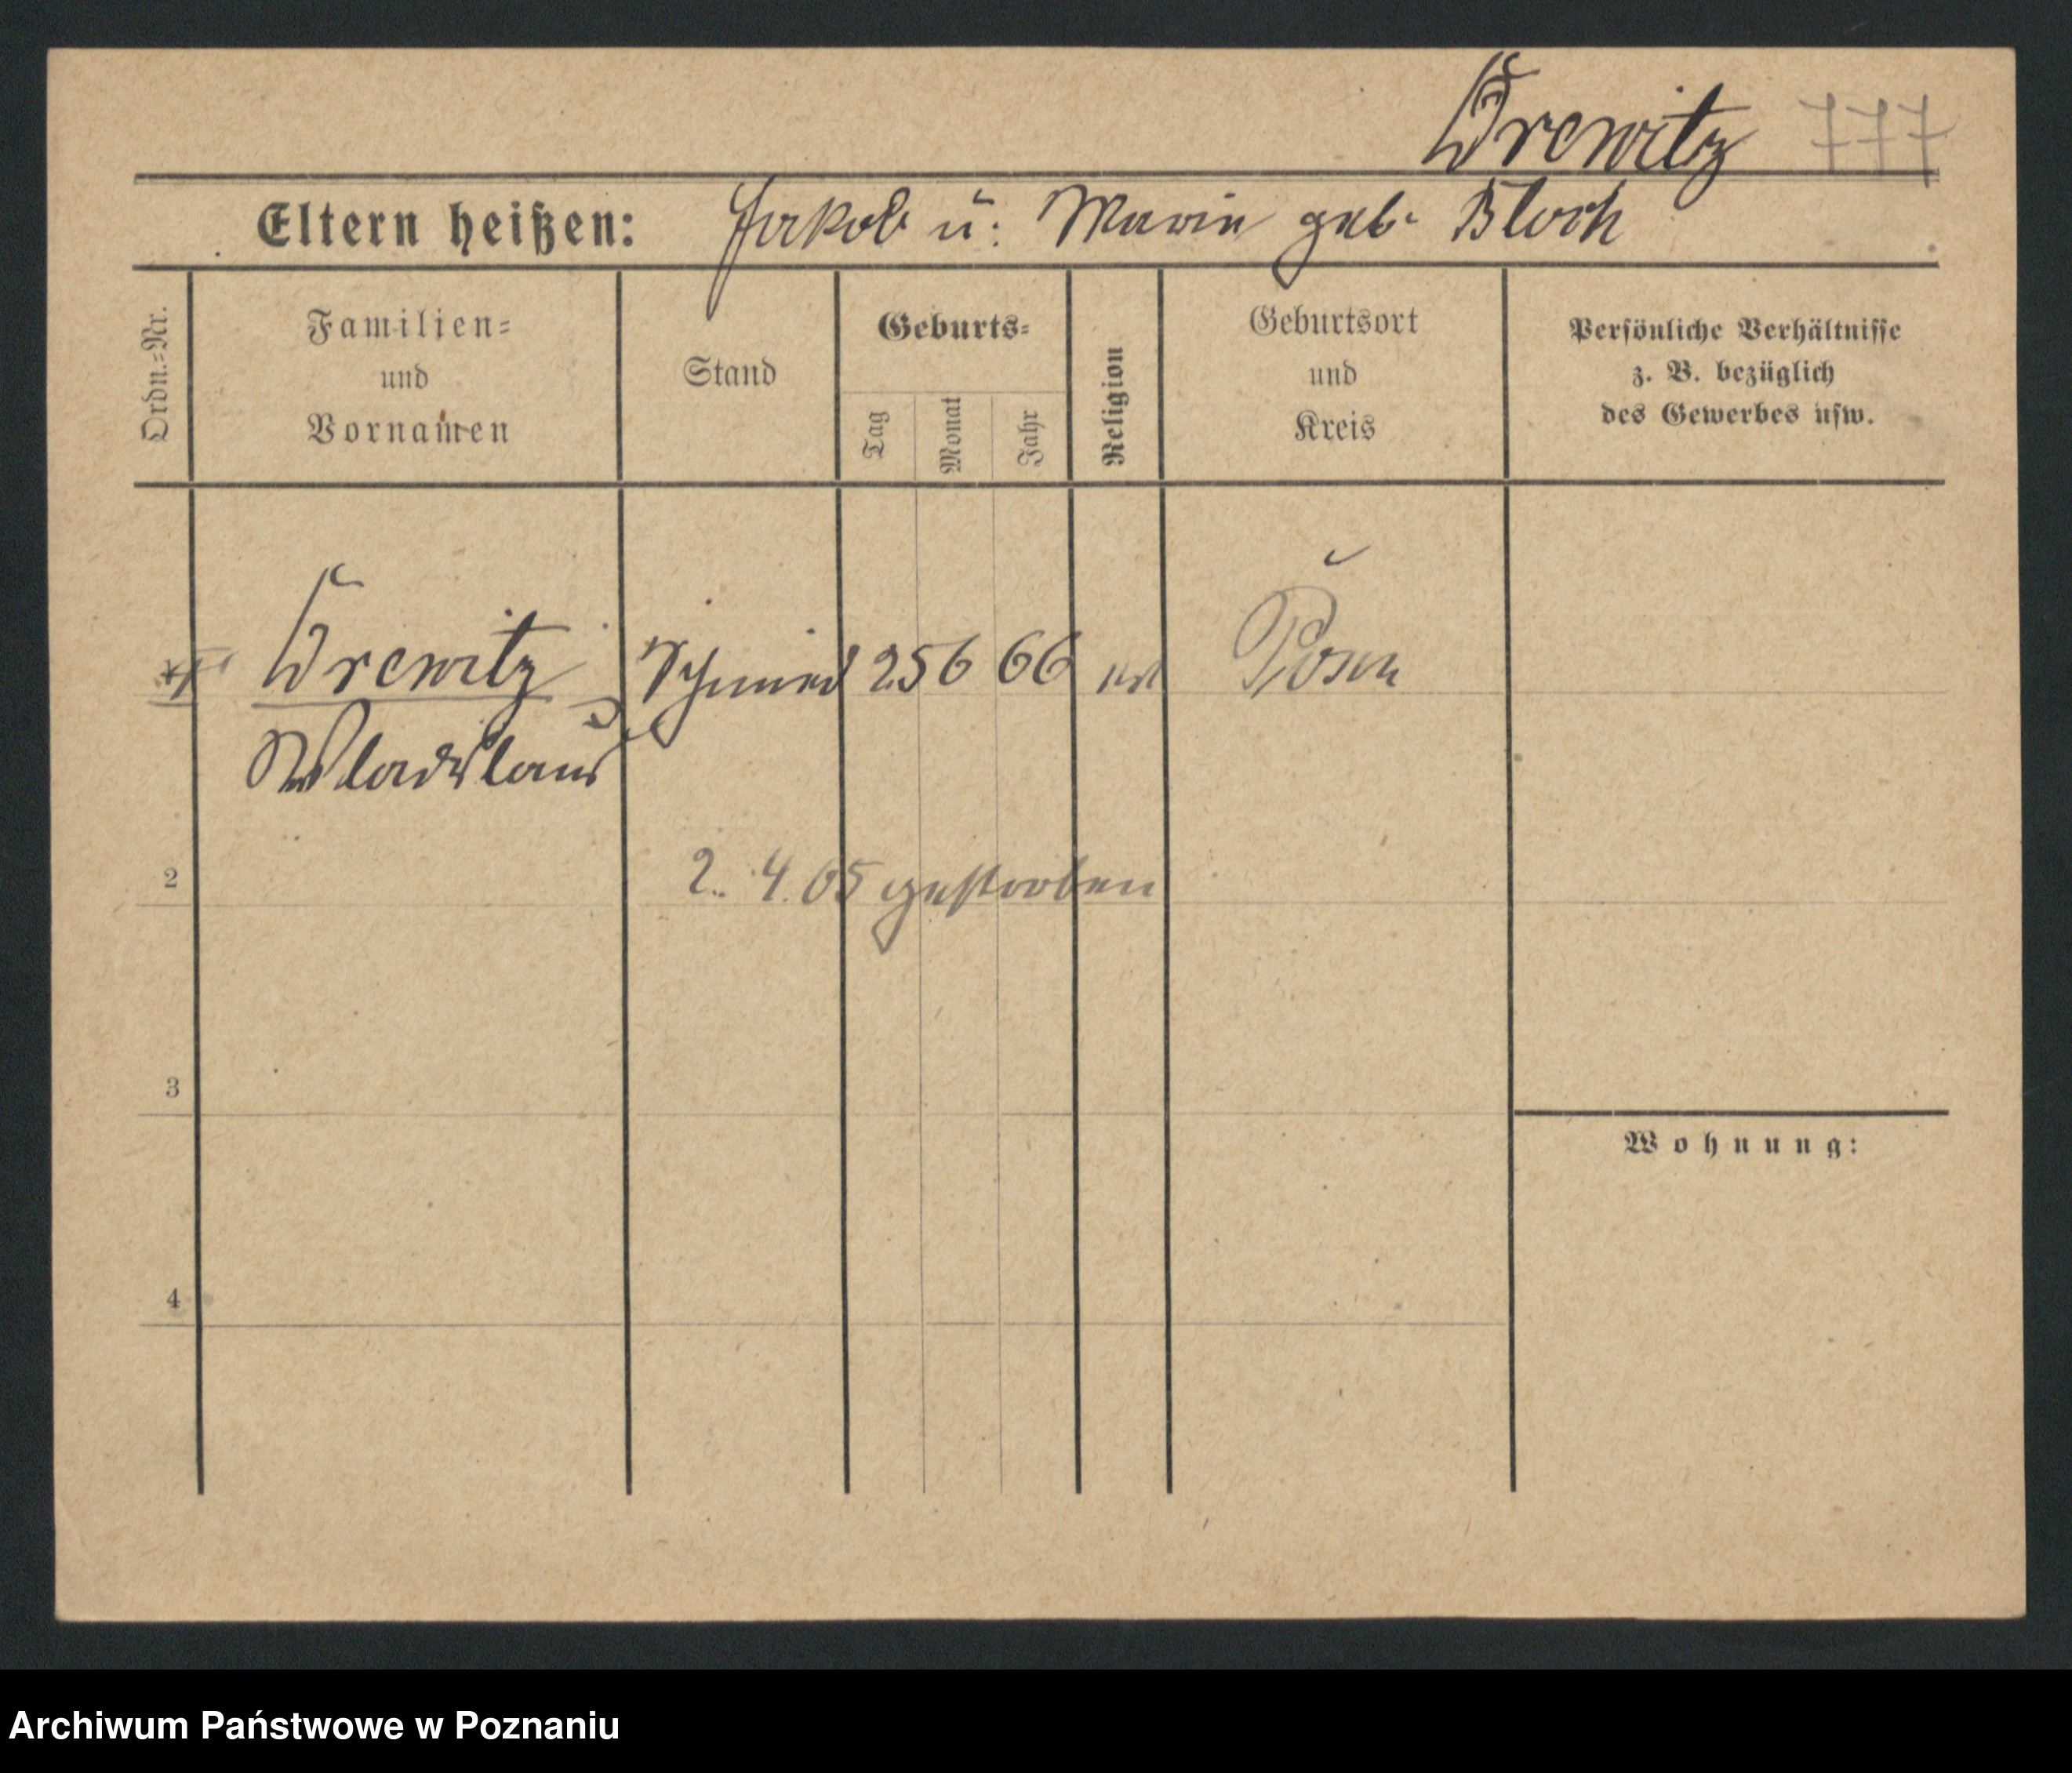 Drewitz
Eltern heißen: Jakob u. Marie geb. Bloch
Ordn.-Nr.
Familien- und Vornamen
Stand
Geburts-
Tag
Monat
Jahr
Religion
Geburtsort und Kreis
Persönliche Verhältnisse
z. B. bezüglich
des Gewerbes usw.
Drewitz Schmied 25 6 66 Posen
Wladislaus
2
2. 4. 05 gestorben
3
Wohnung:
4
Archiwum Państwowe w Poznaniu